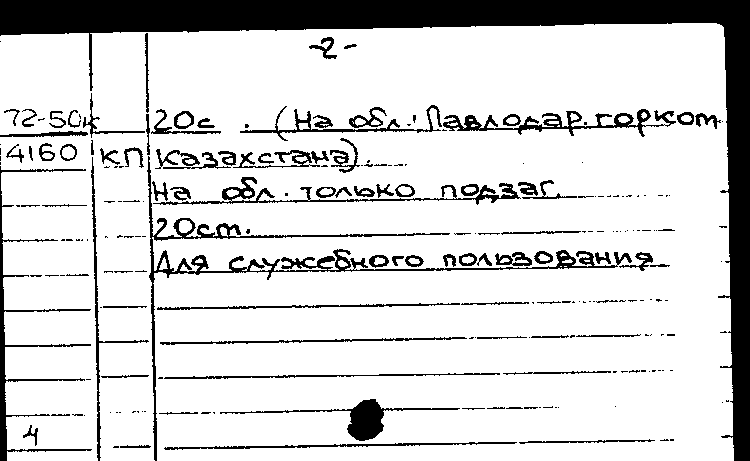 -2-
72-50к 20с . (На обл.: Павлодар. горком
4160 КП Казахстана).
На обл. только подзаг.
20см.
Для служебного пользования
4